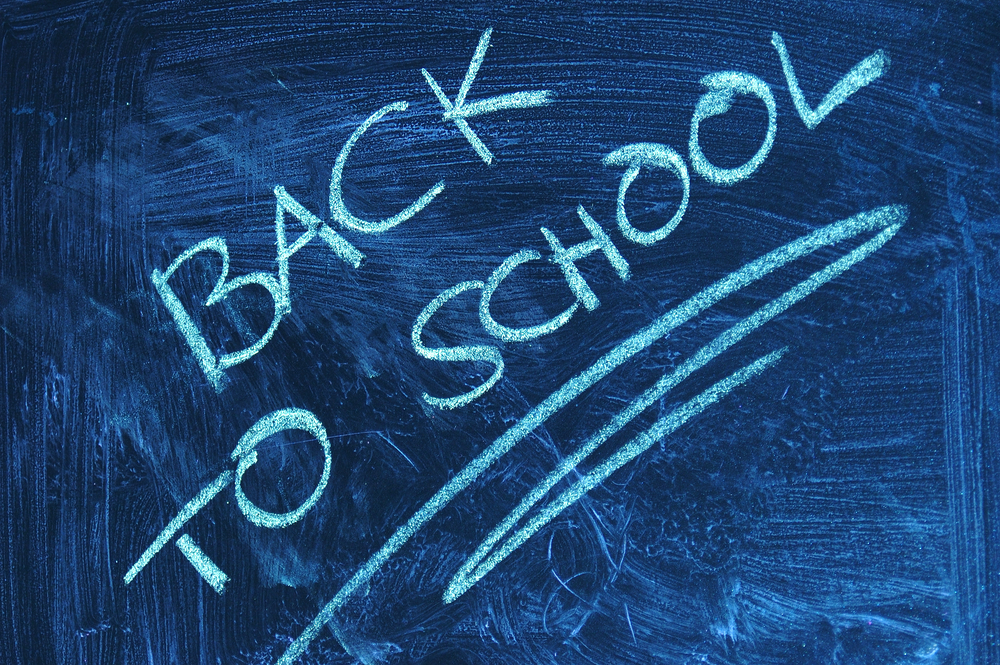 BACK
TO SCHOOL